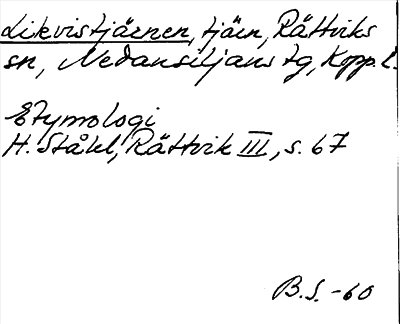 Likvistjärnen, tjärn, Rättviks
sn, Nedansiljans tg, Kopp. l.
Etymologi
H. Ståhl, Rättvik III, s. 67
B.S. -60